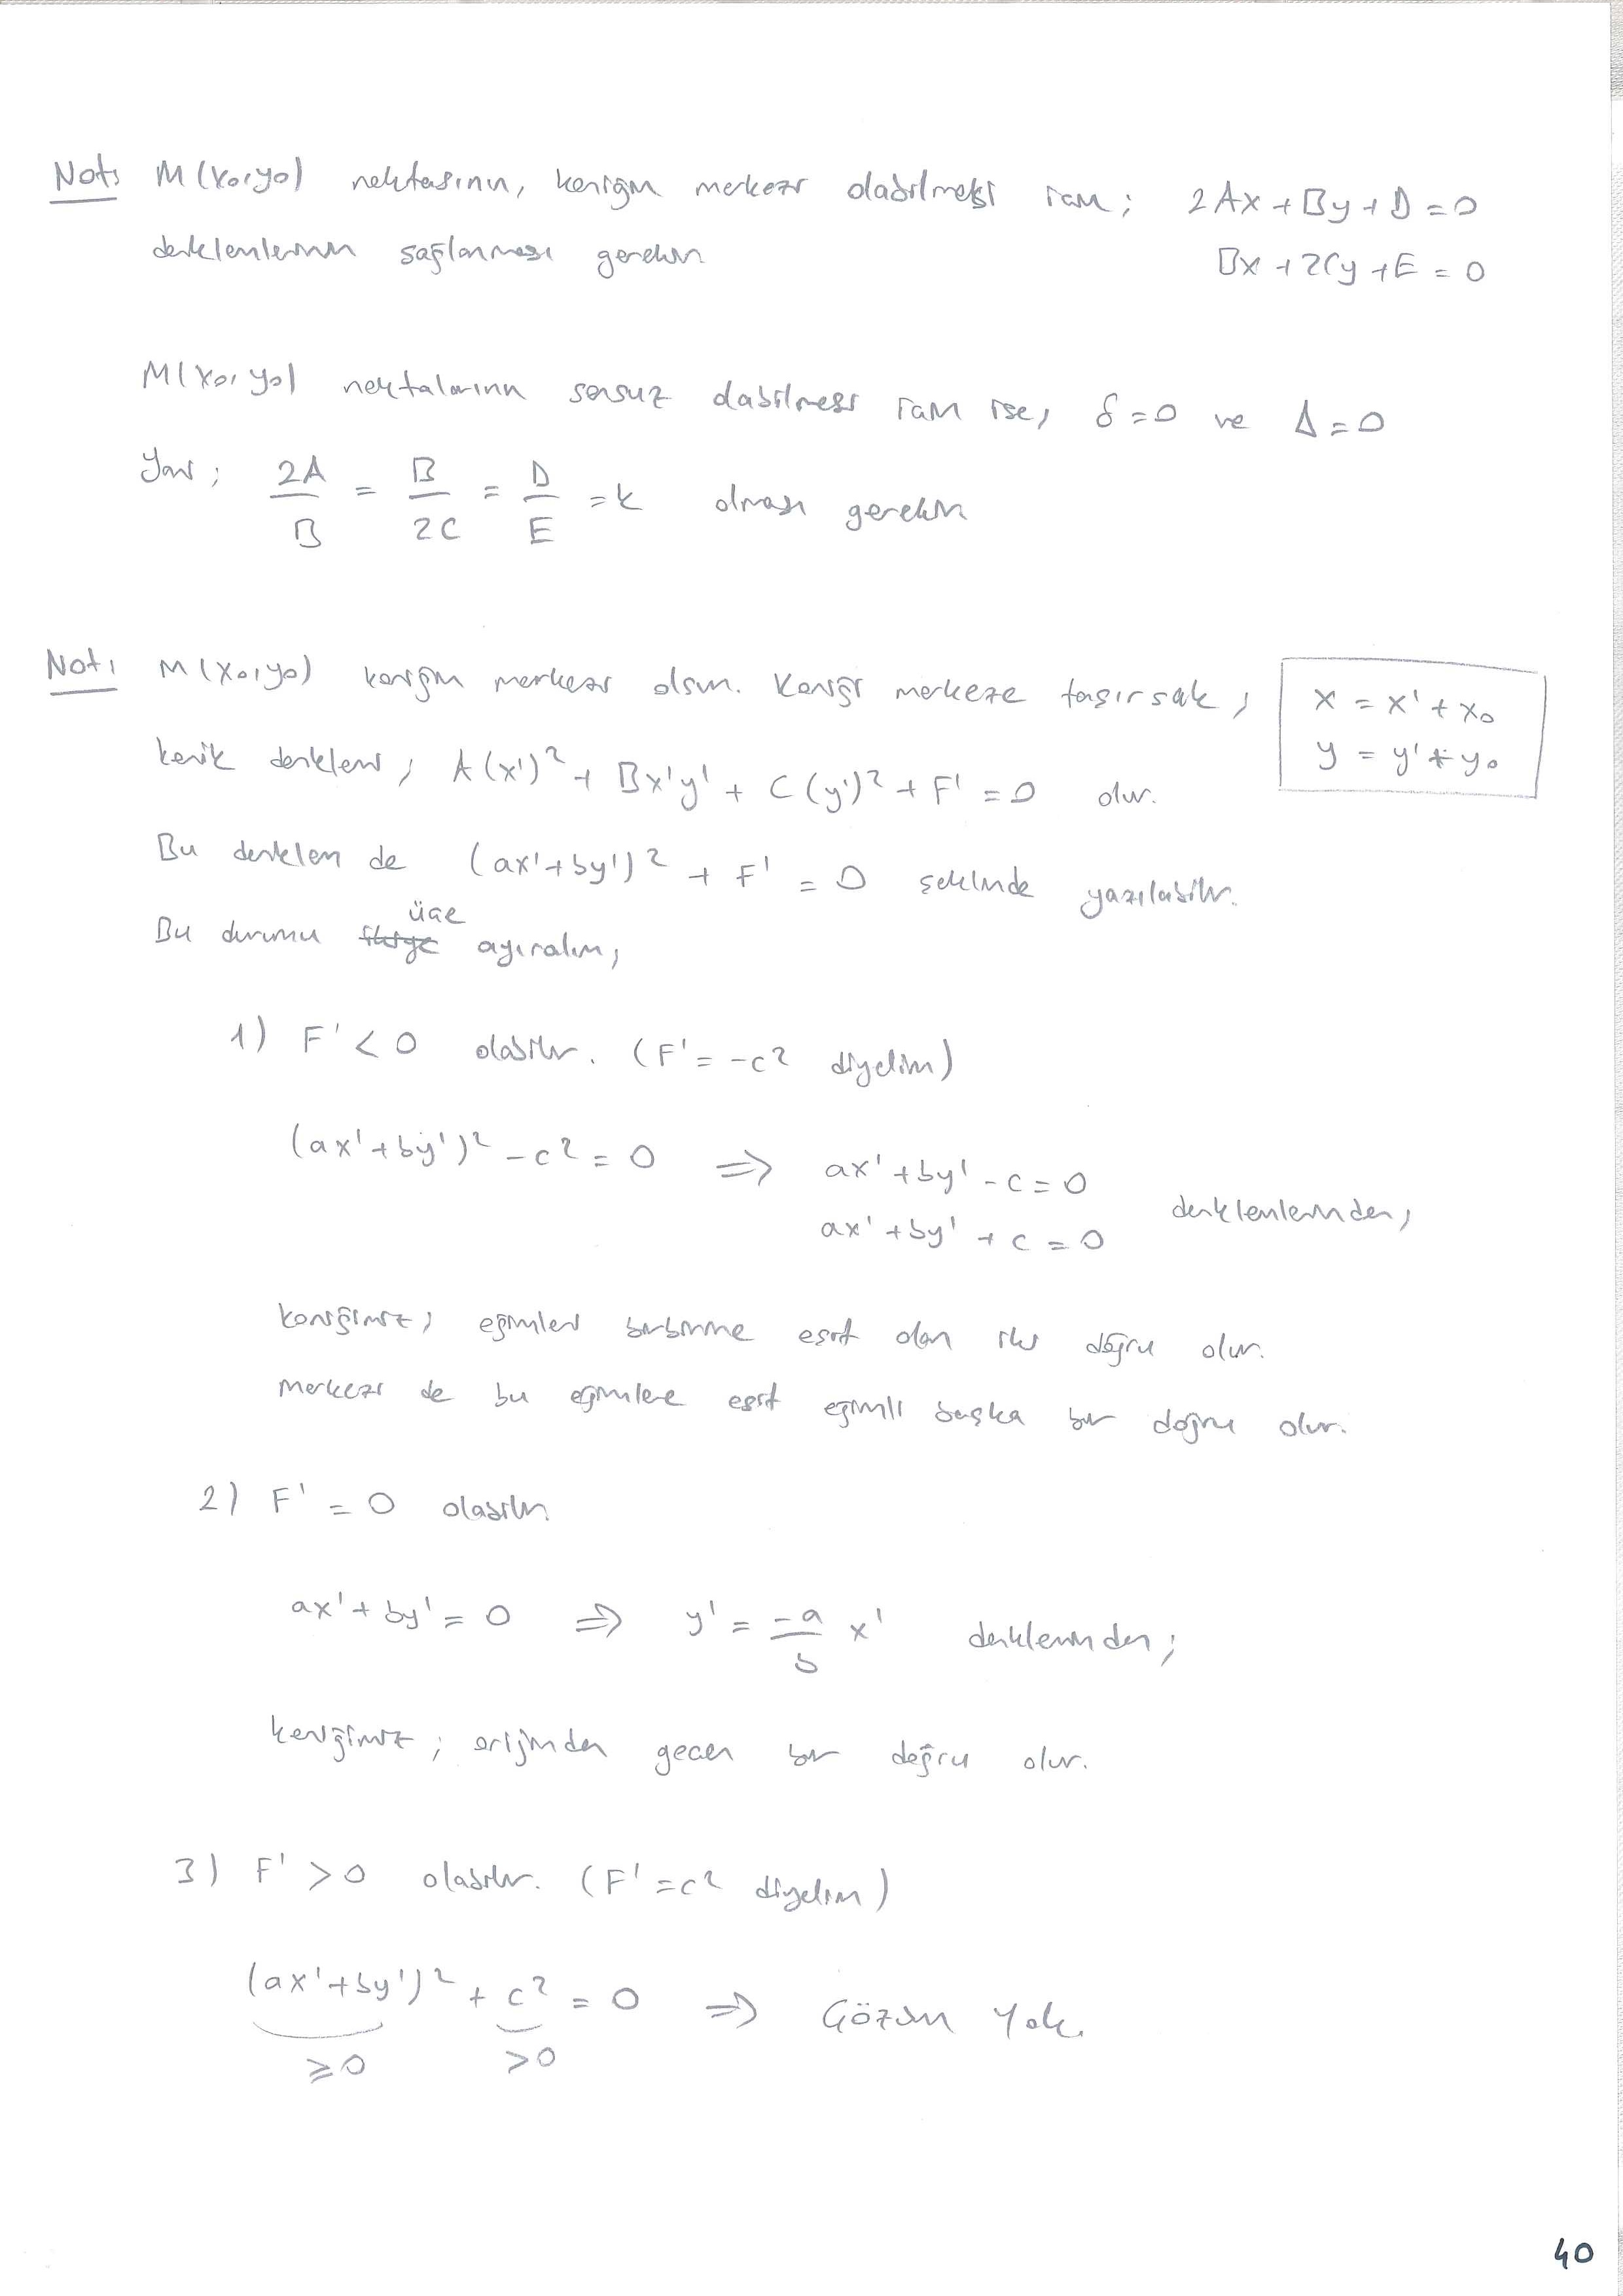 Not: M(x₀,y₀) noktasının, koniğin merkezi olabilmesi için; 2Ax + By + D = 0
denklemlerinin sağlanması gerekir Bx + 2Cy + E = 0
M(x₀,y₀) noktalarının sonsuz olabilmesi için ise, δ = 0 ve Δ = 0
Yani; 2A/B = B/2C = D/E = k olması gerekir
Not: M(x₀,y₀) koniğin merkezi olsun. Koniği merkeze taşırsak, x = x' + x₀
y = y' + y₀
konik denklemi, A(x')² + Bx'y' + C(y')² + F' = 0 olur.
Bu denklem de (ax'+by')² + F' = 0 şeklinde yazılabilir.
Bu durumu üçe ayıralım,
1) F' < 0 olabilir. (F' = -c² diyelim)
(ax'+by')² - c² = 0 ⇒ ax' + by' - c = 0
ax' + by' + c = 0 denklemlerinden,
koniğimiz; eğimleri birbirine eşit olan iki doğru olur.
Merkezi de bu eğimlere eşit eğimli başka bir doğru olur.
2) F' = 0 olabilir
ax' + by' = 0 ⇒ y' = -a/b x' denkleminden;
koniğimiz; orijinden geçen bir doğru olur.
3) F' > 0 olabilir. (F' = c² diyelim)
(ax'+by')² + c² = 0 ⇒ Çözüm Yok.
≥0 >0
40